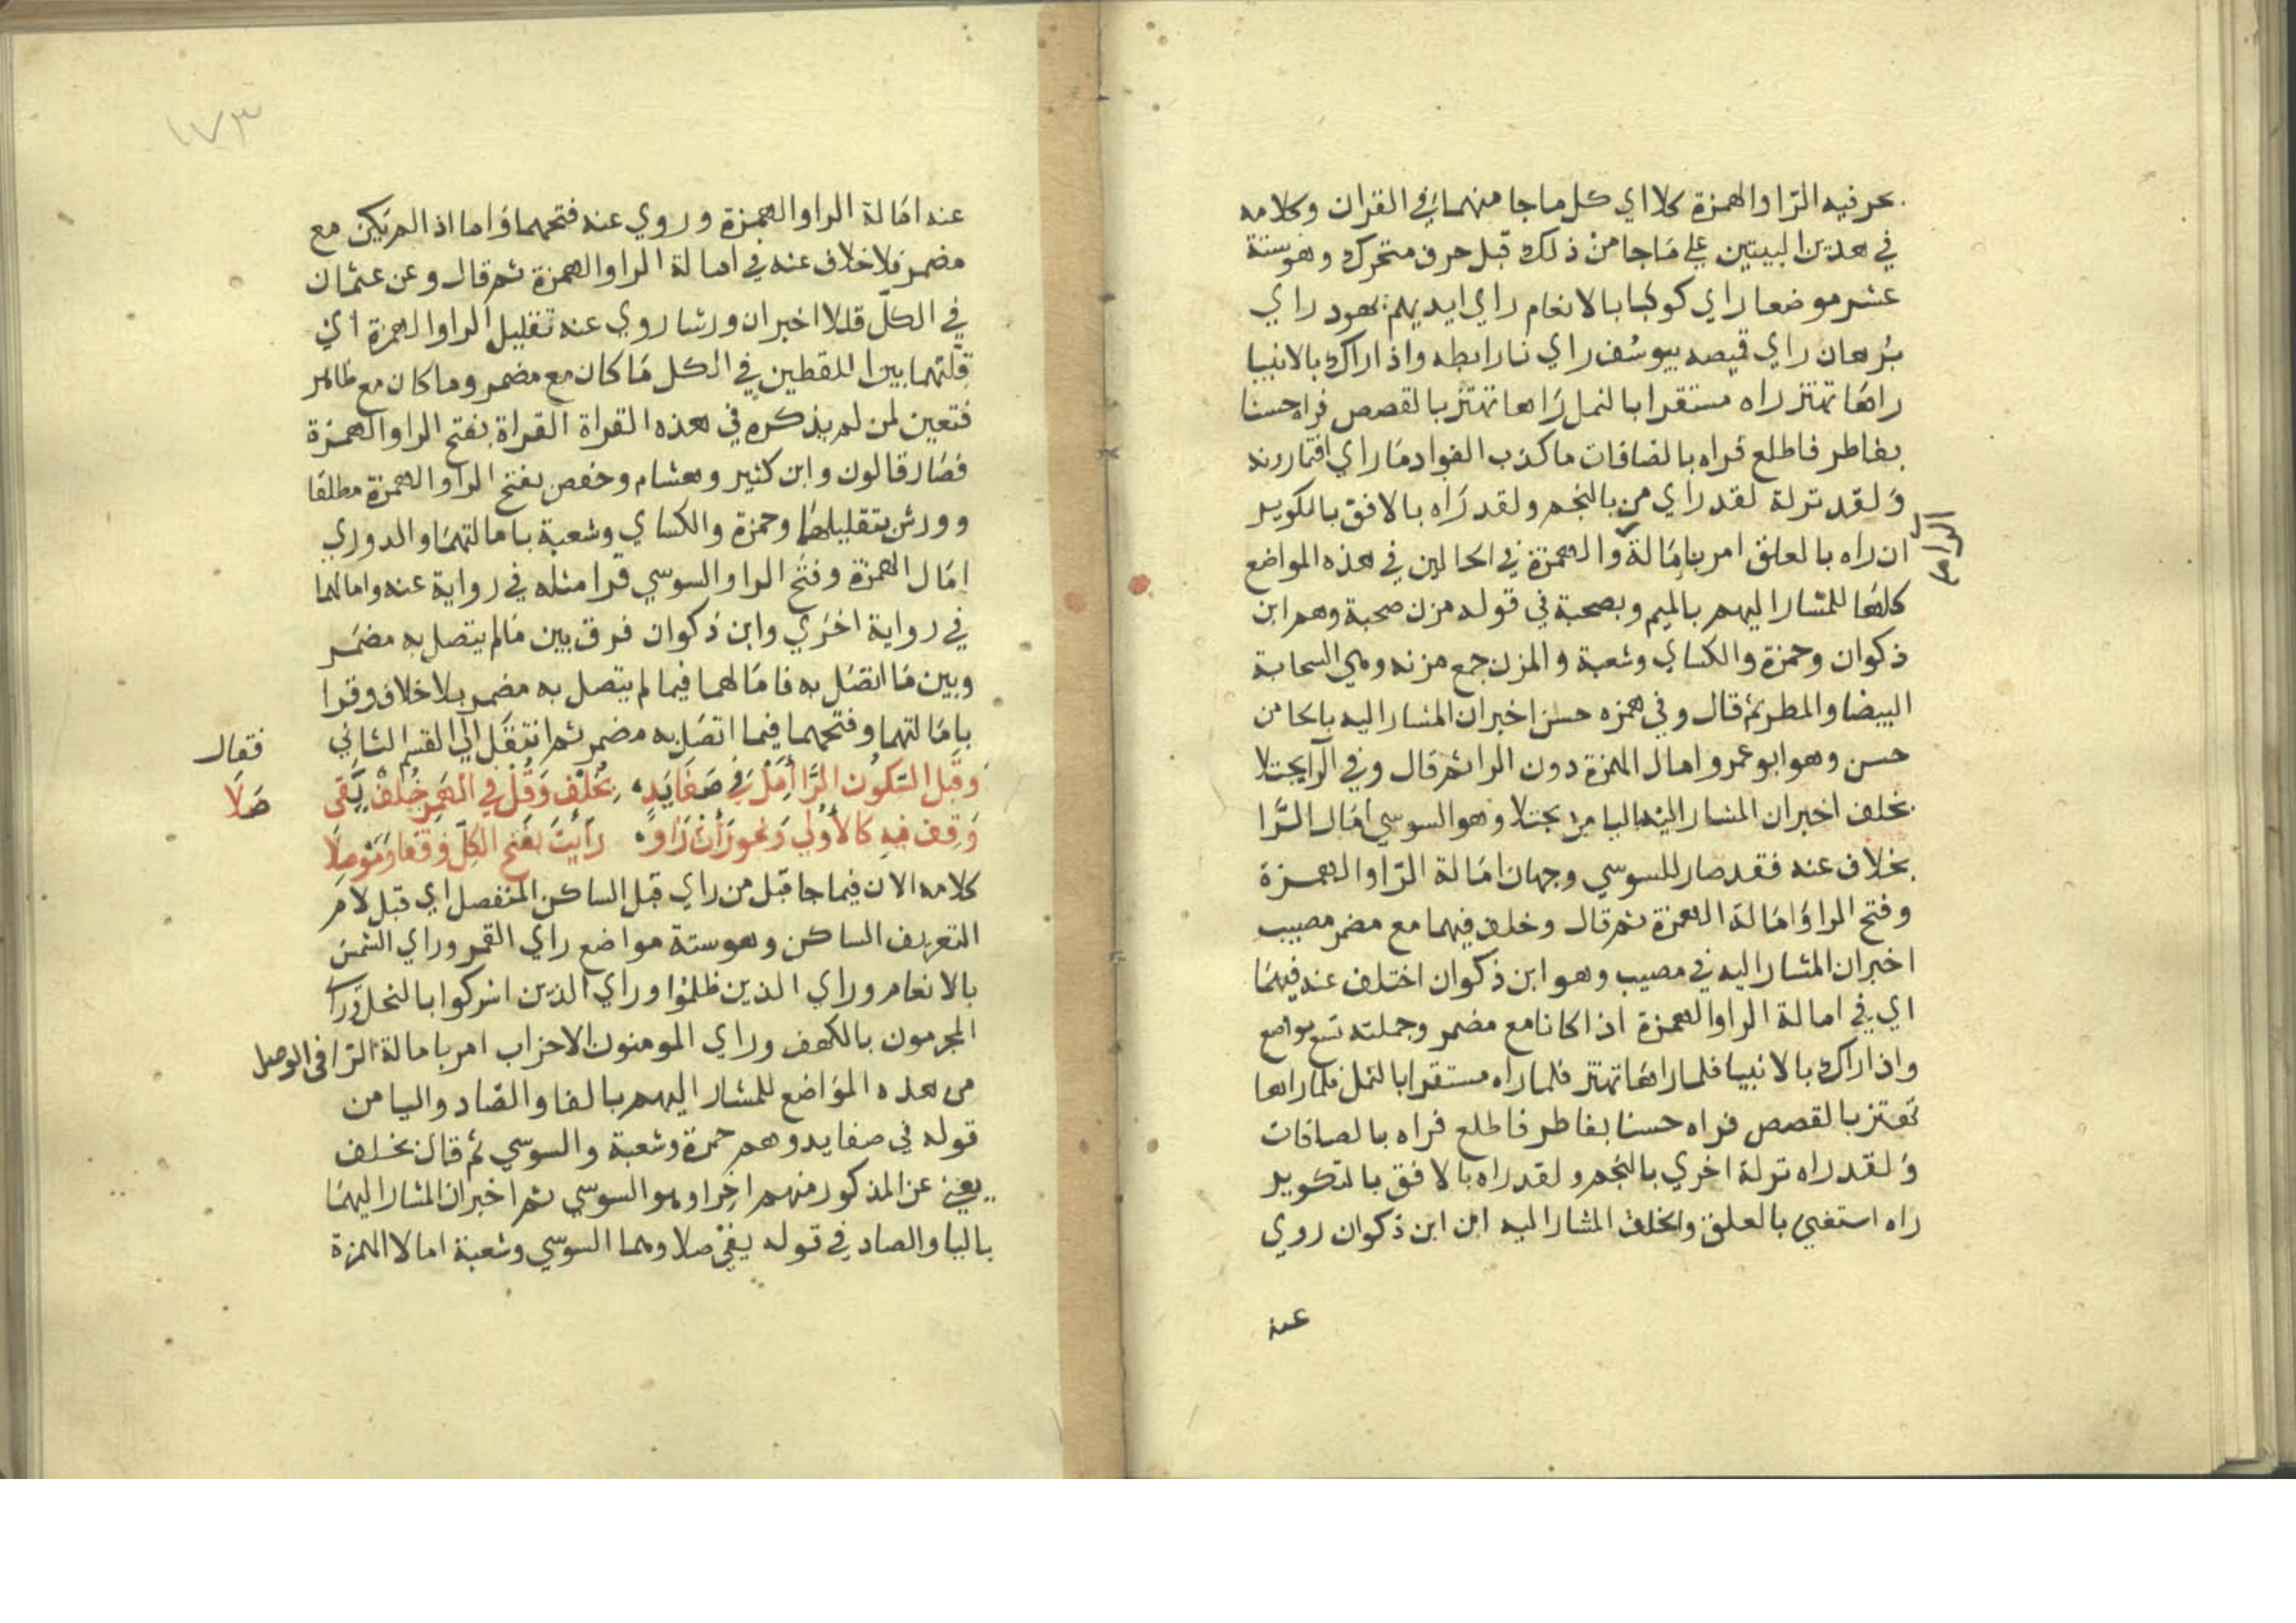 بحرفيه الرا والهمزة كلا اي كل ماجا منهما في القران وكلامه
في هذين البيتين علي ماجا من ذلك قبل حرف متحرك وهو ستة
عشر موضعا راي كوكبا بالانعام راي ايديهم بهود راي
برهان راي قميصه بيوسف راي نارا بطه واذا راك بالانبيا
راها تهتز راه مستقرا بالنمل راها تهتز بالقصص فراه حسنا
بفاطر فاطلع فراه بالصافات ماكذب الفواد ما راي افتمارونه
ولقد نزلة لقد راي من بالنجم ولقد راه بالافق بالكوير
ان راه بالعلق امر بامالة والهمزة في الحالين في هذه المواضع
الرا
كلها للمشار اليهم بالميم وبصحبة في قوله مزن صحبة وهم ابن
ذكوان وحمزة والكساي وشعبة والمزن جمع مزنه وهي السحابة
البيضا والمطر ثم قال وفي همزه حسن اخبر ان المشار اليه بالحا من
حسن وهو ابو عمرو امال الهمزة دون الرا ثم قال وفي الرا يجتلا
بخلف اخبر ان المشار اليه باليا من يجتلا وهو السوسي امال الرا
بخلاف عنه فقد صار للسوسي وجهان امالة الرا والهمزة
وفتح الرا وامالة الهمزة ثم قال وخلف فيهما مع مضمر مصيب
اخبر ان المشار اليه في مصيب وهو ابن ذكوان اختلف عنه فيهما
اي في امالة الرا والهمزة اذا كانا مع مضمر وجملته تسع مواضع
واذا راك بالانبيا فلما راها تهتز فلما راه مستقرا بالنمل فلما راها
تهتز بالقصص فراه حسنا بفاطر فاطلع فراه بالصافات
ولقد راه نزلة اخري بالنجم ولقد راه بالافق بالتكوير
راه استغني بالعلق والخلف المشار اليه ان ابن ذكوان روي
عنه
١٧٣
عنه امالة الرا والهمزة وروي عنه فتحهما واما اذا لم يكن مع
مضمر فلا خلاف عنه في امالة الرا والهمزة ثم قال وعن عثمان
في الكل قللا اخبر ان ورشا روي عنه تقليل الرا والهمزة اي
قللتهما بين اللفظين في الكل ما كان مع مضمر وما كان مع ظاهر
فتعين لمن لم يذكره في هذه القراة القراة بفتح الرا والهمزة
فصار قالون وابن كثير وهشام وحفص بفتح الرا والهمزة مطلقا
وورش بتقليلهما وحمزة والكساي وشعبة بامالتهما والدوري
امال الهمزة وفتح الرا والسوسي قرا مثله في رواية عنه وامالهما
في رواية اخري وابن ذكوان فرق بين مالم يتصل به مضمر
وبين ما اتصل به فامالهما فيما لم يتصل به مضمر بلا خلاف وقرا
بامالتهما وفتحهما فيما اتصل به مضمر ثم انتقل الي القسم الثاني فقال
وقبل السكون الرا امل في صفا يد بخلف وقل في الهمز خلف يقي صلا
وقف فيه كالاولي ونحو رات راو رايت بفتح الكل وقفا وموصلا
كلامه الان فيما جا قبل من راي قبل الساكن المنفصل اي قبل لام
التعريف الساكن وهو ستة مواضع راي القمر وراي الشمس
بالانعام وراي الذين ظلموا وراي الذين اشركوا بالنحل ورا
المجرمون بالكهف وراي المومنون الاحزاب امر بامالة الرا في الوصل
من هذه المواضع للمشار اليهم بالفا والصاد واليا من
قوله في صفا يد وهم حمزة وشعبة والسوسي ثم قال بخلف
يعني عن المذكور منهم اخرا وهو السوسي ثم اخبر ان المشار اليهما
باليا والصاد في قوله يقي صلا وهما السوسي وشعبة امالا الهمزة